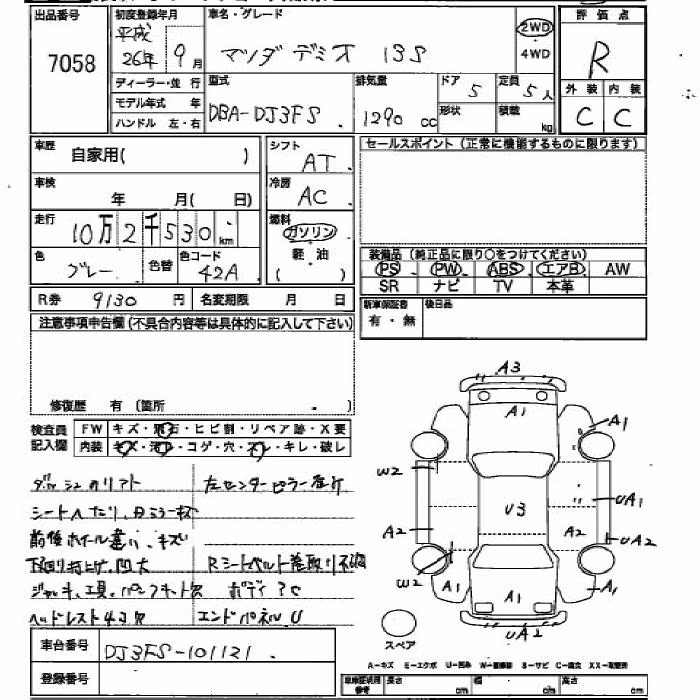 出品番号
7058
初度登録年月
平成
26年 9月
ディーラー・並 行
モデル年式 年
ハンドル 左・右
車名・グレード
マツダ デミオ 13S
2WD
4WD
評価点
R
外装 内装
C C
型式
DBA-DJ3FS
排気量
1290 cc
ドア
5
形状
定員
5人
積載
kg
車歴
自家用( )
車検
年 月( 日)
走行
10万2千530 km
色
グレー
色替
色コード
42A
シフト
AT
冷房
AC
燃料
ガソリン
軽・油
( )
セールスポイント(正常に機能するものに限ります)
装備品(純正品に限り○をつけてください)
PS PW ABS エアB AW
SR ナビ TV 本革
新車保証書
有・無
後日品
R券 9130 円 名変期限 月 日
注意事項申告欄(不具合内容等は具体的に記入して下さい)
修復歴 有 (箇所 )
検査員
記入欄
FW キズ・飛石・ヒビ割・リペア跡・X要
内装 キズ・汚れ・コゲ・穴・スレ・キレ・破レ
左センターピラー
シートヘたり
前後ホイール違い、キズ
下廻り 凹大
Rシートベルト巻取り不良
ジャッキ、工具、パンクキット欠
ボディ
ヘッドレスト4ヶ欠
エンドパネルU
車台番号
DJ3FS-101121
登録番号
A3
A1
A1
W2
U3
UA1
A2
A2
UA2
W2
A1
A1
A1
UA2
スペア
A-キズ E-エクボ U-凹み W-補修跡 S-サビ C-腐食 XX-取替済
車庫証明用
参考
長さ cm 幅 cm 高さ cm